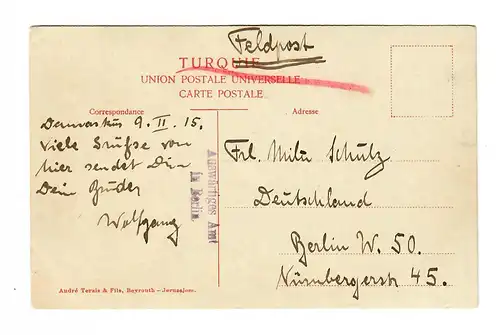 Feldpost
TURQUIE
UNION POSTALE UNIVERSELLE
CARTE POSTALE
Correspondance
Adresse
Damaskus 9. II. 15.
Viele Grüsse von
hier sendet Dir
Dein Bruder
Wolfgang
Auswärtiges Amt
in Berlin.
Frl. Milu Schütz
Deutschland
Berlin W. 50.
Nürnbergerstr 45.
André Terzis & Fils, Beyrouth - Jerusalem.